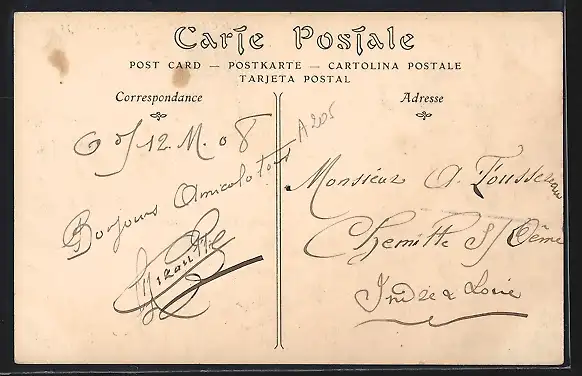 Carte Postale
POST CARD — POSTKARTE — CARTOLINA POSTALE
TARJETA POSTAL
Correspondance
Adresse
12. M. 08
A 205
Bonjour Amical
Monsieur A. Tousseneau
Chemillé S/ Dême
Indre & Loire